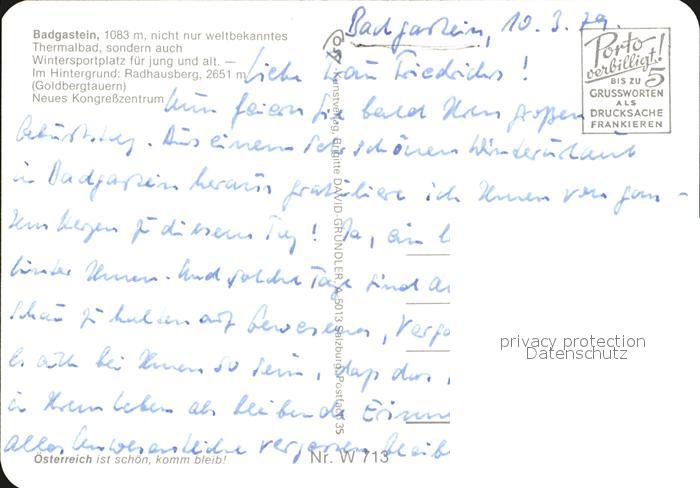 Badgastein, 1083 m, nicht nur weltbekanntes
Thermalbad, sondern auch
Wintersportplatz für jung und alt. —
Im Hintergrund: Radhausberg, 2651 m
(Goldbergtauern)
Neues Kongreßzentrum
Badgastein, 10. 3. 79.
Porto
verbilligt!
BIS ZU 5
GRUSSWORTEN
ALS
DRUCKSACHE
FRANKIEREN
Liebe Frau Friedrichs!
Nun feiern Sie bald Ihren großen
Geburtstag. Aus einem sehr schönen Winterurlaub
in Badgastein heraus gratuliere ich Ihnen von gan-
zem Herzen zu diesem Tag! Ja, ein
hinter Ihnen. Und solche Tage sind
Schau zu halten auf Gewesenes,
es auch bei Ihnen so sein, daß das
in Ihrem Leben als bleibende
alles Unwesentliche vergessen
Kunstverlag, Brigitte DAVID-GRÜNDLER, A-5013 Salzburg, Postfach 35
privacy protection
Datenschutz
Österreich ist schön, komm bleib!
Nr. W 713